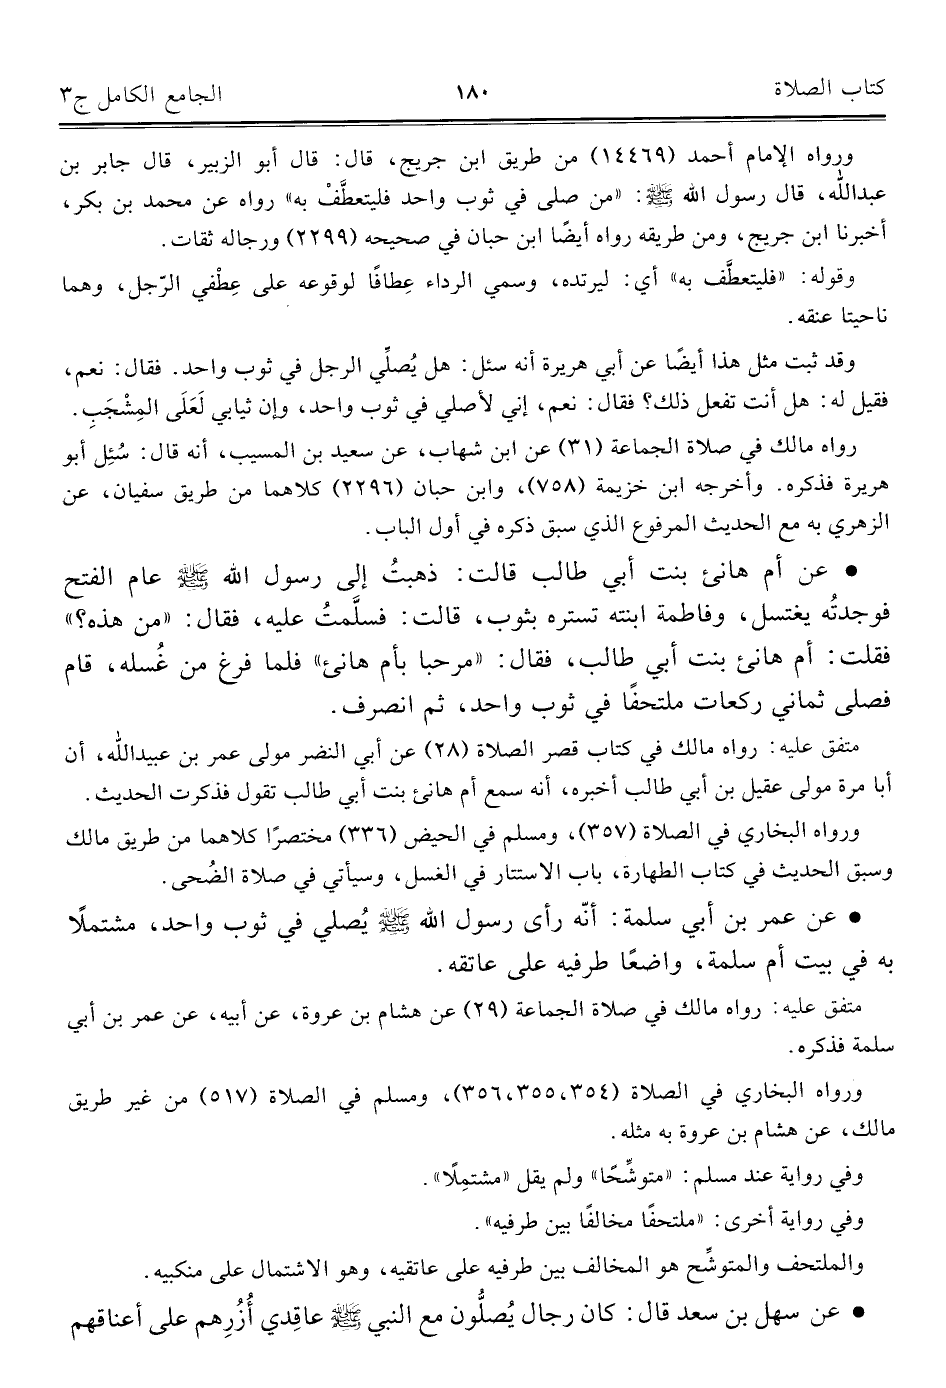 كتاب الصلاة ١٨٠ الجامع الكامل ج٣
ورواه الإمام أحمد (١٤٤٦٩) من طريق ابن جريج، قال: قال أبو الزبير، قال جابر بن
عبدالله، قال رسول الله ﷺ: «من صلى في ثوب واحد فليتعطَّفْ به» رواه عن محمد بن بكر،
أخبرنا ابن جريج، ومن طريقه رواه أيضًا ابن حبان في صحيحه (٢٢٩٩) ورجاله ثقات.
وقوله: «فليتعطَّف به» أي: ليرتده، وسمي الرداء عِطافًا لوقوعه على عِطْفي الرّجل، وهما
ناحيتا عنقه.
وقد ثبت مثل هذا أيضًا عن أبي هريرة أنه سئل: هل يُصلِّي الرجل في ثوب واحد. فقال: نعم،
فقيل له: هل أنت تفعل ذلك؟ فقال: نعم، إني لأصلي في ثوب واحد، وإن ثيابي لَعَلَى المِشْجَبِ.
رواه مالك في صلاة الجماعة (٣١) عن ابن شهاب، عن سعيد بن المسيب، أنه قال: سُئِل أبو
هريرة فذكره. وأخرجه ابن خزيمة (٧٥٨)، وابن حبان (٢٢٩٦) كلاهما من طريق سفيان، عن
الزهري به مع الحديث المرفوع الذي سبق ذكره في أول الباب.
• عن أم هانئ بنت أبي طالب قالت: ذهبتُ إلى رسول الله ﷺ عام الفتح
فوجدتُه يغتسل، وفاطمة ابنته تستره بثوب، قالت: فسلَّمتُ عليه، فقال: «من هذه؟»
فقلت: أم هانئ بنت أبي طالب، فقال: «مرحبا بأم هانئ» فلما فرغ من غُسله، قام
فصلى ثماني ركعات ملتحفًا في ثوب واحد، ثم انصرف.
متفق عليه: رواه مالك في كتاب قصر الصلاة (٢٨) عن أبي النضر مولى عمر بن عبيدالله، أن
أبا مرة مولى عقيل بن أبي طالب أخبره، أنه سمع أم هانئ بنت أبي طالب تقول فذكرت الحديث.
ورواه البخاري في الصلاة (٣٥٧)، ومسلم في الحيض (٣٣٦) مختصرًا كلاهما من طريق مالك
وسبق الحديث في كتاب الطهارة، باب الاستتار في الغسل، وسيأتي في صلاة الضُحى.
• عن عمر بن أبي سلمة: أنّه رأى رسول الله ﷺ يُصلي في ثوب واحد، مشتملًا
به في بيت أم سلمة، واضعًا طرفيه على عاتقه.
متفق عليه: رواه مالك في صلاة الجماعة (٢٩) عن هشام بن عروة، عن أبيه، عن عمر بن أبي
سلمة فذكره.
ورواه البخاري في الصلاة (٣٥٤،٣٥٥،٣٥٦)، ومسلم في الصلاة (٥١٧) من غير طريق
مالك، عن هشام بن عروة به مثله.
وفي رواية عند مسلم: «متوشِّحًا» ولم يقل «مشتمِلًا».
وفي رواية أخرى: «ملتحفًا مخالفًا بين طرفيه».
والملتحف والمتوشِّح هو المخالف بين طرفيه على عاتقيه، وهو الاشتمال على منكبيه.
• عن سهل بن سعد قال: كان رجال يُصلُّون مع النبي ﷺ عاقِدي أُزُرِهم على أعناقهم